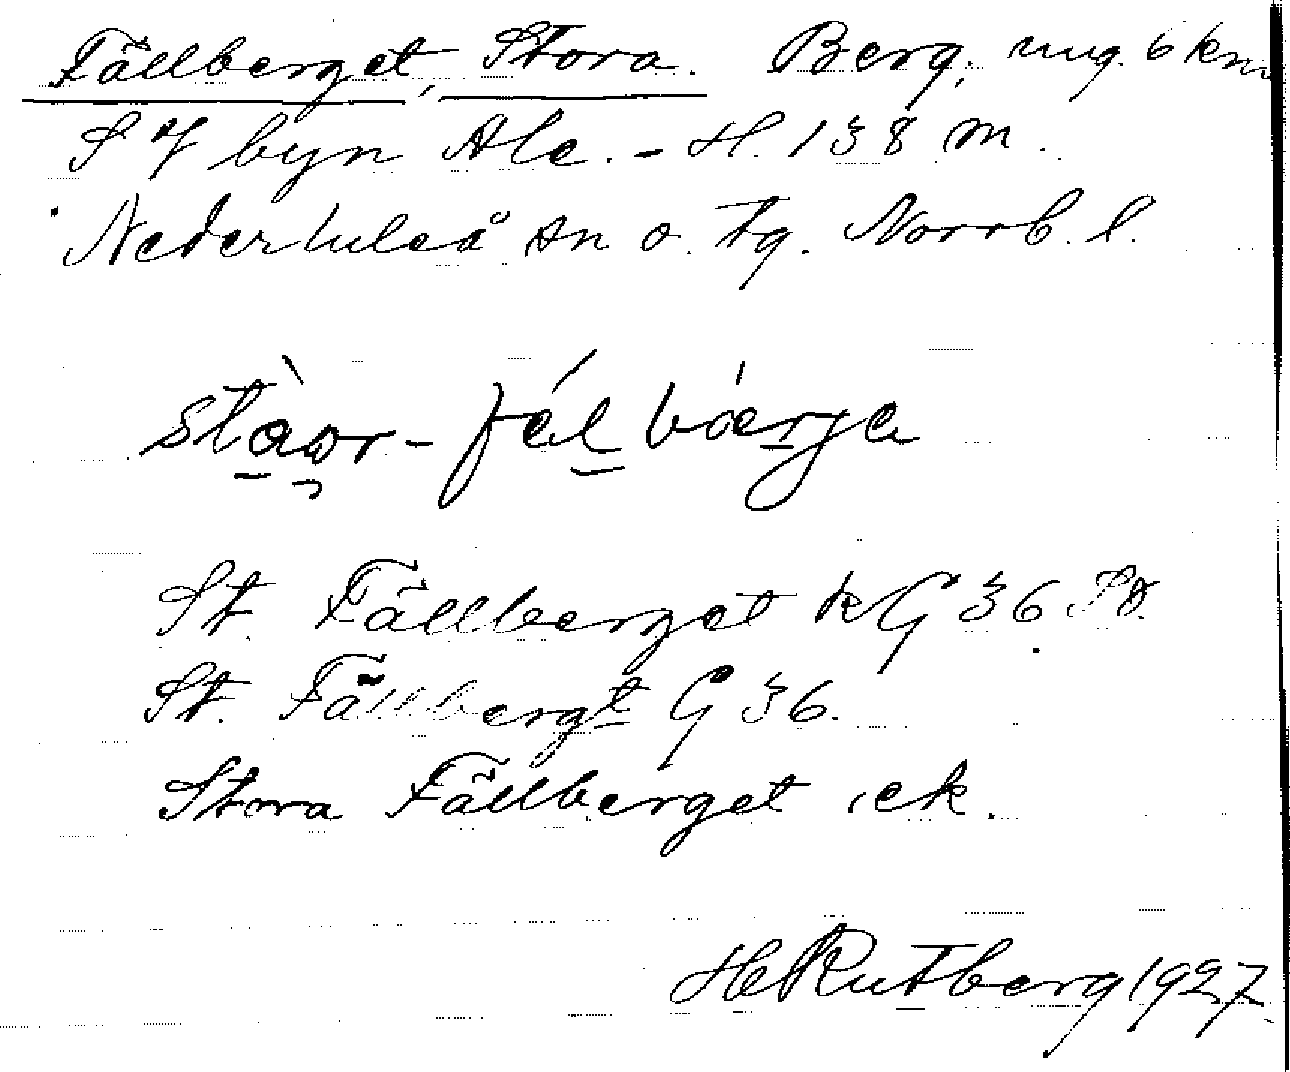 Fällberget, Stora. Berg, ung. 6 km
S f byn Ale. - H. 138 m.
Nederluleå sn o. tg. Norrb. l.
St. Fällberget kG 36
St. Fällbergt G 36.
Stora Fällberget ek.
HRutberg 1927